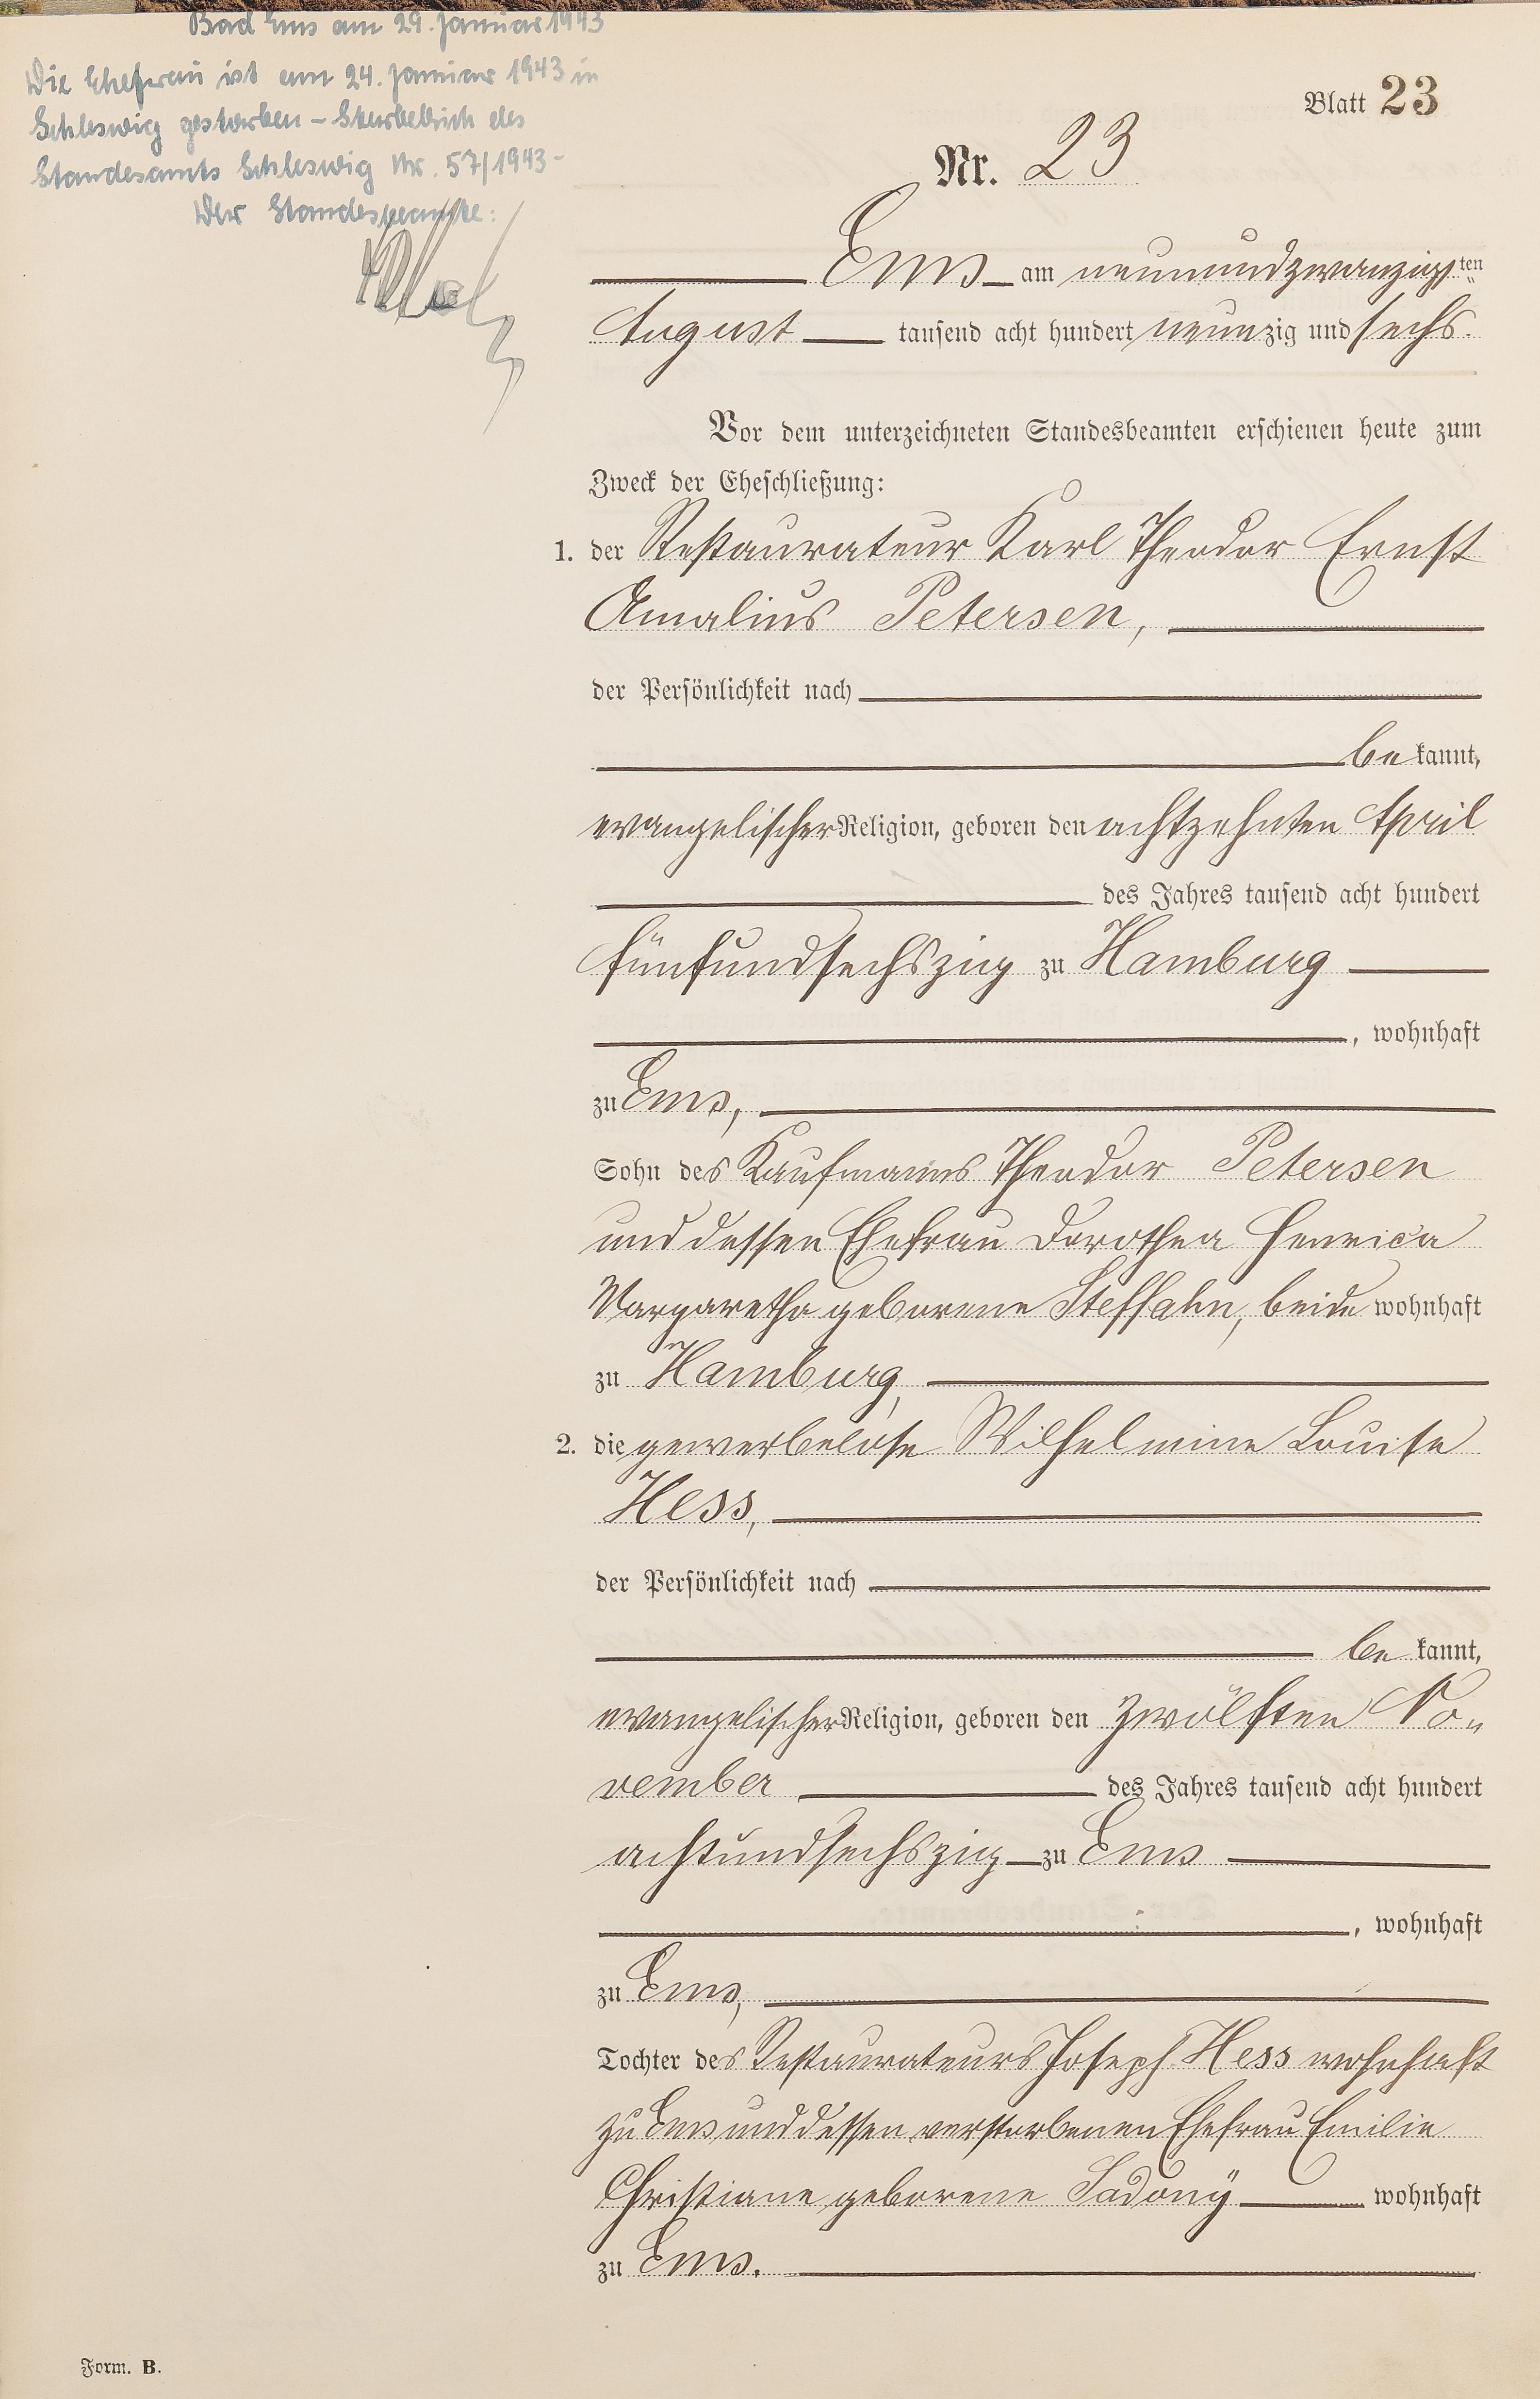 Bad Ems am 29. Januar 1943
Die Ehefrau ist am 24. Januar 1943 in
Schleswig gestorben – Sterbebuch des
Standesamts Schleswig Nr. 57/1943 –
Der Standesbeamte:
Blatt 23
Nr. 23
Ems am neunundzwanzigsten
August tausend acht hundert neunzig und sechs.
Vor dem unterzeichneten Standesbeamten erschienen heute zum
Zweck der Eheschließung:
1. der Restaurateur Karl Theodor Ernst
Amalius Petersen,
der Persönlichkeit nach
be kannt,
evangelischer Religion, geboren den achtzehnten April
des Jahres tausend acht hundert
fünfundsechszig zu Hamburg
, wohnhaft
zu Ems,
Sohn des Kaufmanns Theodor Petersen
und dessen Ehefrau Dorothea Henrica
Margaretha geborene Steffahn, beide wohnhaft
zu Hamburg,
2. die gewerbelose Wilhelmine Louise
Hess,
der Persönlichkeit nach
be kannt,
evangelischer Religion, geboren den zwölften No„
vember des Jahres tausend acht hundert
achtundsechszig zu Ems
, wohnhaft
zu Ems,
Tochter des Restaurateurs Joseph Hess wohnhaft
zu Ems und dessen verstorbenen Ehefrau Emilie
Christiane geborene Sadony wohnhaft
zu Ems.
Form. B.